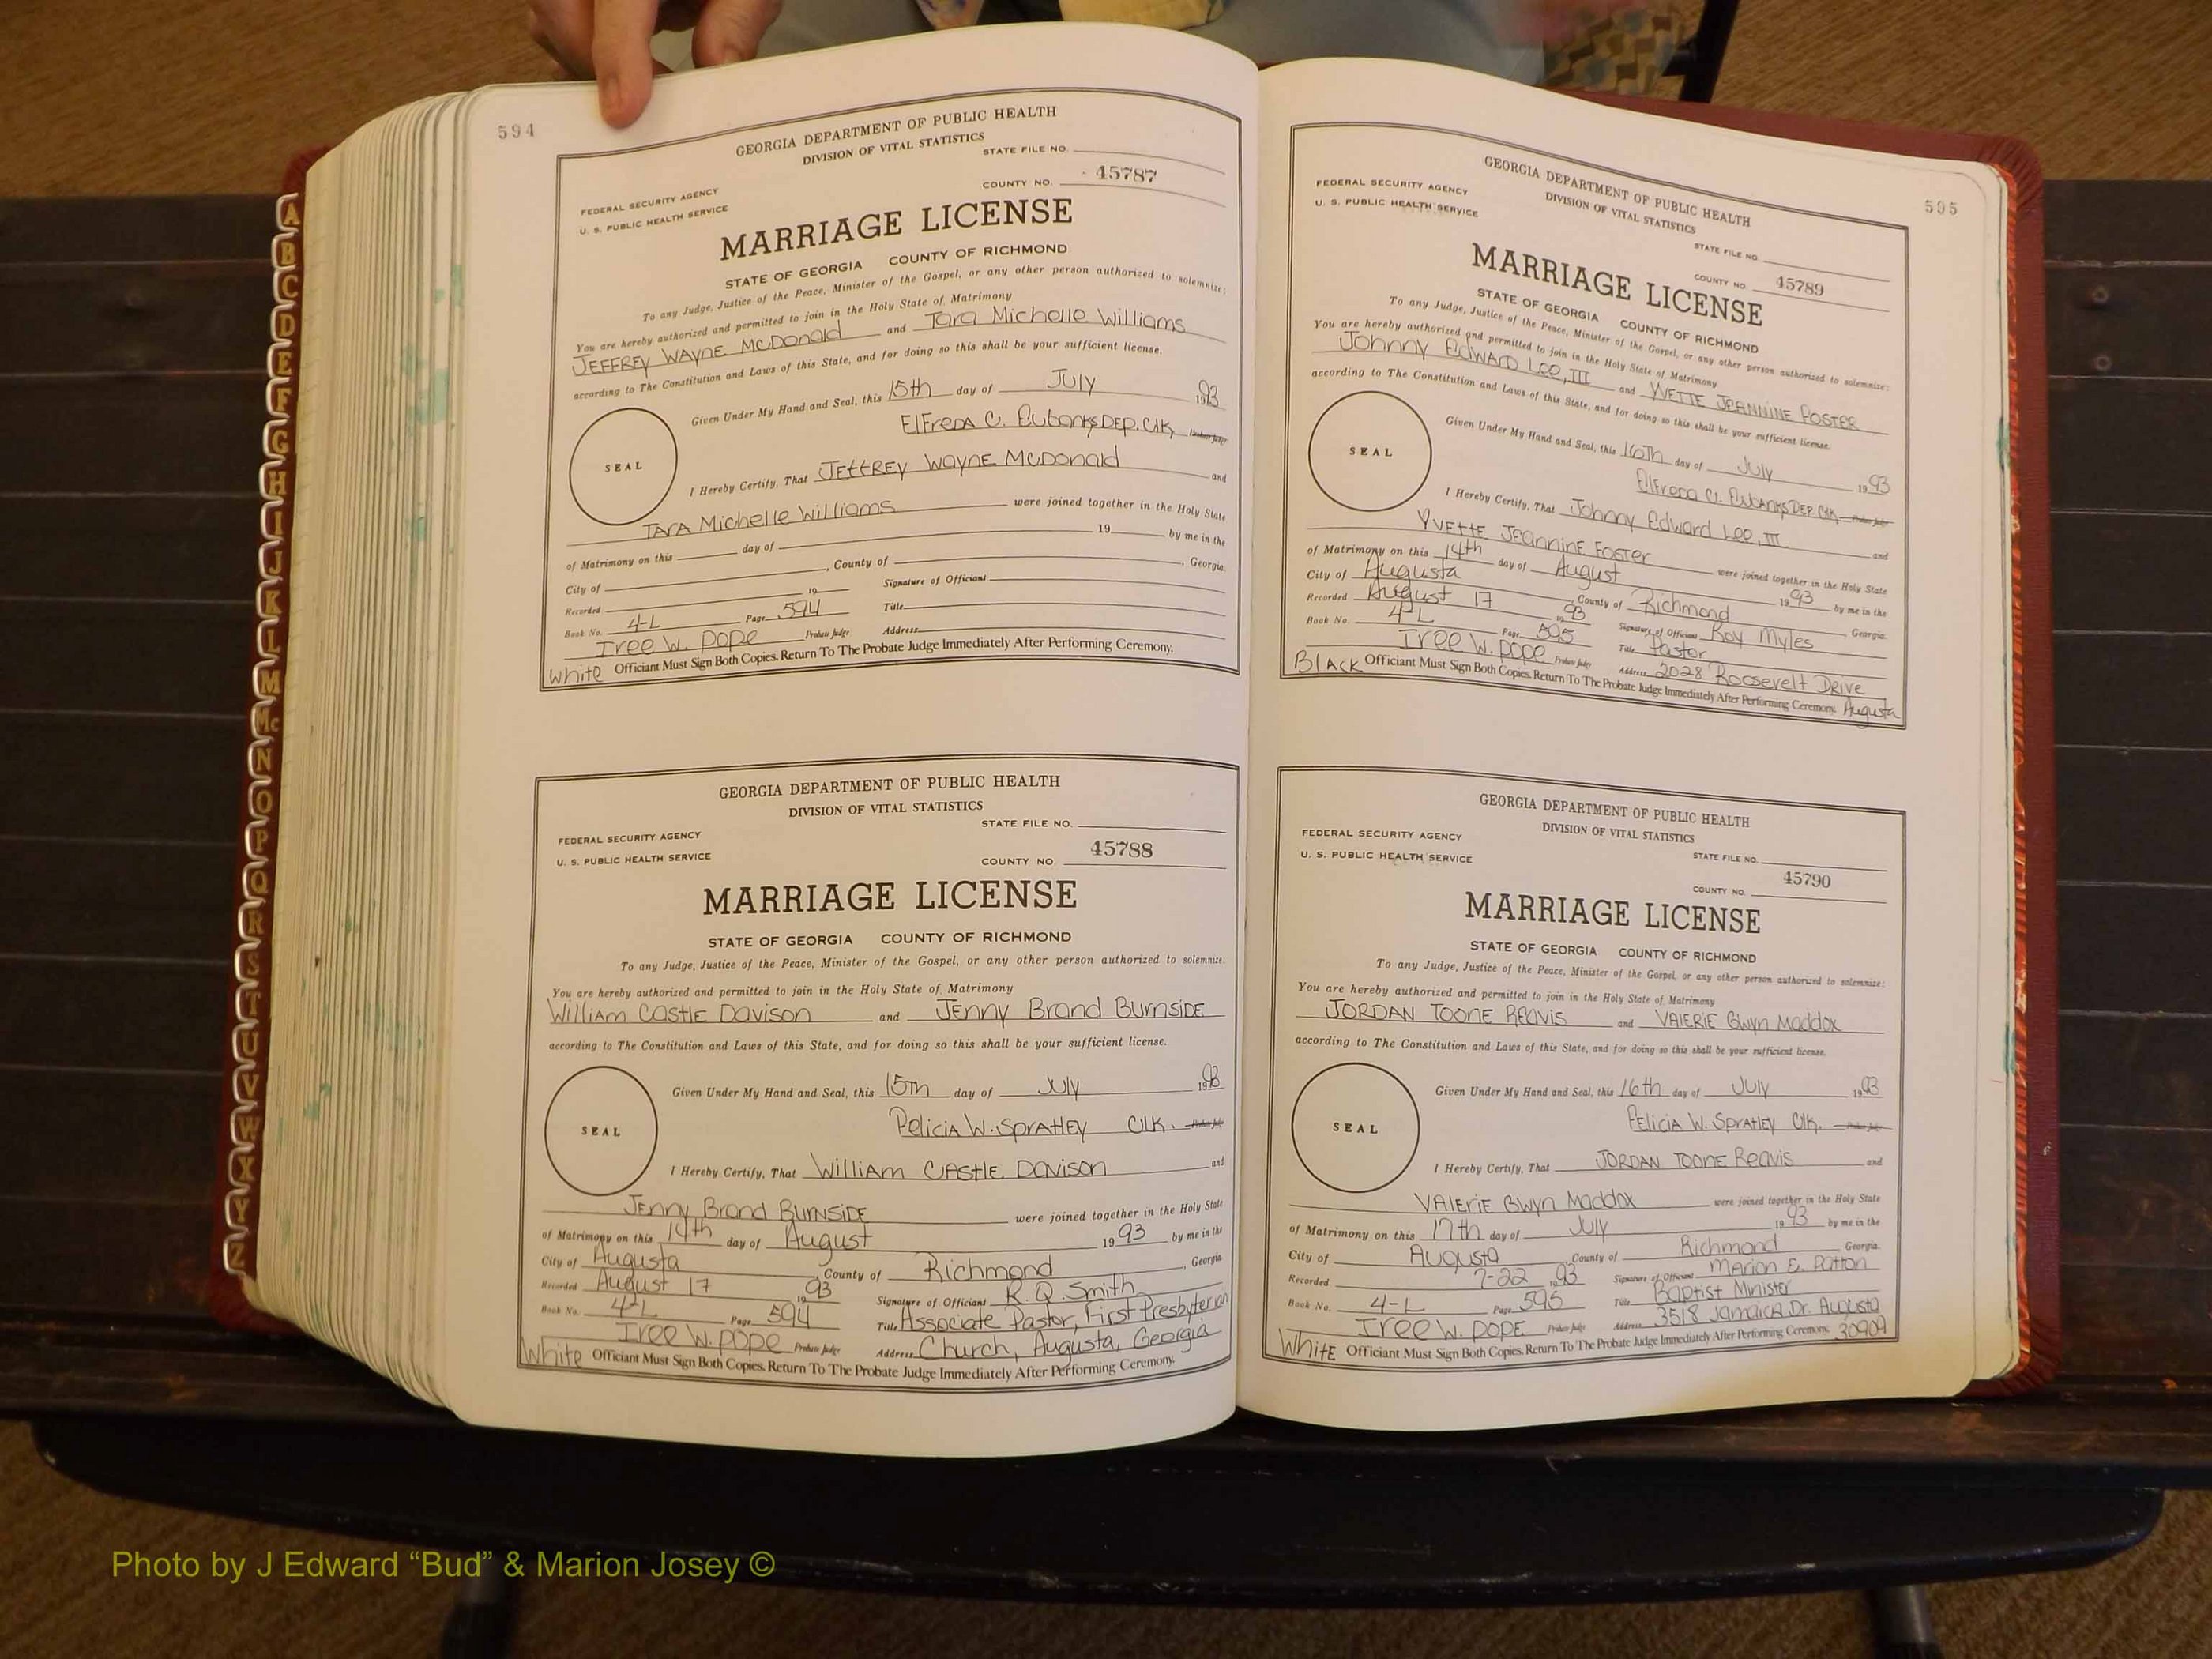 594
GEORGIA DEPARTMENT OF PUBLIC HEALTH
DIVISION OF VITAL STATISTICS
STATE FILE NO.
FEDERAL SECURITY AGENCY
U. S. PUBLIC HEALTH SERVICE
COUNTY NO. 45787
MARRIAGE LICENSE
STATE OF GEORGIA COUNTY OF RICHMOND
To any Judge, Justice of the Peace, Minister of the Gospel, or any other person authorized to solemnize:
You are hereby authorized and permitted to join in the Holy State of Matrimony
JEFFREY WAYNE McDonald and Tara Michelle Williams
according to The Constitution and Laws of this State, and for doing so this shall be your sufficient license.
Given Under My Hand and Seal, this 15th day of July 1993
ElFreda C. Eubanks DEP. Clk, Probate Judge
SEAL
I Hereby Certify, That JEffREY WAYNE McDonald and
TARA Michelle Williams were joined together in the Holy State
of Matrimony on this day of 19 by me in the
City of , County of , Georgia.
Recorded 19 Signature of Officiant
Book No. 4-L Page 594 Title
Iree W. Pope Probate Judge Address
White Officiant Must Sign Both Copies. Return To The Probate Judge Immediately After Performing Ceremony.
GEORGIA DEPARTMENT OF PUBLIC HEALTH
DIVISION OF VITAL STATISTICS
STATE FILE NO.
FEDERAL SECURITY AGENCY
U. S. PUBLIC HEALTH SERVICE
COUNTY NO. 45788
MARRIAGE LICENSE
STATE OF GEORGIA COUNTY OF RICHMOND
To any Judge, Justice of the Peace, Minister of the Gospel, or any other person authorized to solemnize:
You are hereby authorized and permitted to join in the Holy State of Matrimony
William Castle Davison and Jenny Brand Burnside
according to The Constitution and Laws of this State, and for doing so this shall be your sufficient license.
Given Under My Hand and Seal, this 15th day of July 1993
Felicia W. Spratley Clk. Probate Judge
SEAL
I Hereby Certify, That William Castle Davison and
Jenny Brand Burnside were joined together in the Holy State
of Matrimony on this 14th day of August 1993 by me in the
City of Augusta , County of Richmond , Georgia.
Recorded August 17 1993 Signature of Officiant R. Q. Smith
Book No. 4-L Page 594 Title Associate Pastor, First Presbyterian
Iree W. Pope Probate Judge Address Church, Augusta, Georgia
White Officiant Must Sign Both Copies. Return To The Probate Judge Immediately After Performing Ceremony.
595
GEORGIA DEPARTMENT OF PUBLIC HEALTH
DIVISION OF VITAL STATISTICS
FEDERAL SECURITY AGENCY
U. S. PUBLIC HEALTH SERVICE
STATE FILE NO.
COUNTY NO. 45789
MARRIAGE LICENSE
STATE OF GEORGIA COUNTY OF RICHMOND
To any Judge, Justice of the Peace, Minister of the Gospel, or any other person authorized to solemnize:
You are hereby authorized and permitted to join in the Holy State of Matrimony
Johnny Edward Lee, III and YVETTE JEANNINE FOSTER
according to The Constitution and Laws of this State, and for doing so this shall be your sufficient license.
Given Under My Hand and Seal, this 16th day of July 1993
ElFreda C. Eubanks DEP. Clk, Probate Judge
SEAL
I Hereby Certify, That Johnny Edward Lee, III and
Yvette Jeannine Foster were joined together in the Holy State
of Matrimony on this 14th day of August 1993 by me in the
City of Augusta , County of Richmond Georgia.
Recorded August 17 1993 Signature of Officiant Roy Myles
Book No. 4-L Page 595 Title Pastor
Iree W. Pope Probate Judge Address 2028 Roosevelt Drive
Black Officiant Must Sign Both Copies. Return To The Probate Judge Immediately After Performing Ceremony. Augusta
GEORGIA DEPARTMENT OF PUBLIC HEALTH
DIVISION OF VITAL STATISTICS
FEDERAL SECURITY AGENCY
U. S. PUBLIC HEALTH SERVICE
STATE FILE NO.
COUNTY NO. 45790
MARRIAGE LICENSE
STATE OF GEORGIA COUNTY OF RICHMOND
To any Judge, Justice of the Peace, Minister of the Gospel, or any other person authorized to solemnize:
You are hereby authorized and permitted to join in the Holy State of Matrimony
JORDAN TOONE Reavis and Valerie Gwyn Maddox
according to The Constitution and Laws of this State, and for doing so this shall be your sufficient license.
Given Under My Hand and Seal, this 16th day of July 1993
Felicia W. Spratley Clk. Probate Judge
SEAL
I Hereby Certify, That JORDAN TOONE Reavis and
Valerie Gwyn Maddox were joined together in the Holy State
of Matrimony on this 17th day of July 1993 by me in the
City of Augusta , County of Richmond Georgia.
Recorded 7-22 1993 Signature of Officiant Marion E. Patton
Book No. 4-L Page 595 Title Baptist Minister
Iree W. Pope Probate Judge Address 3518 Jamaica Dr. Augusta
White Officiant Must Sign Both Copies. Return To The Probate Judge Immediately After Performing Ceremony. 30909
A
B
C
D
E
F
G
H
I
J
K
L
M
Mc
N
O
P
Q
R
S
T
U
V
W
X
Y
Z
Photo by J Edward “Bud” & Marion Josey ©